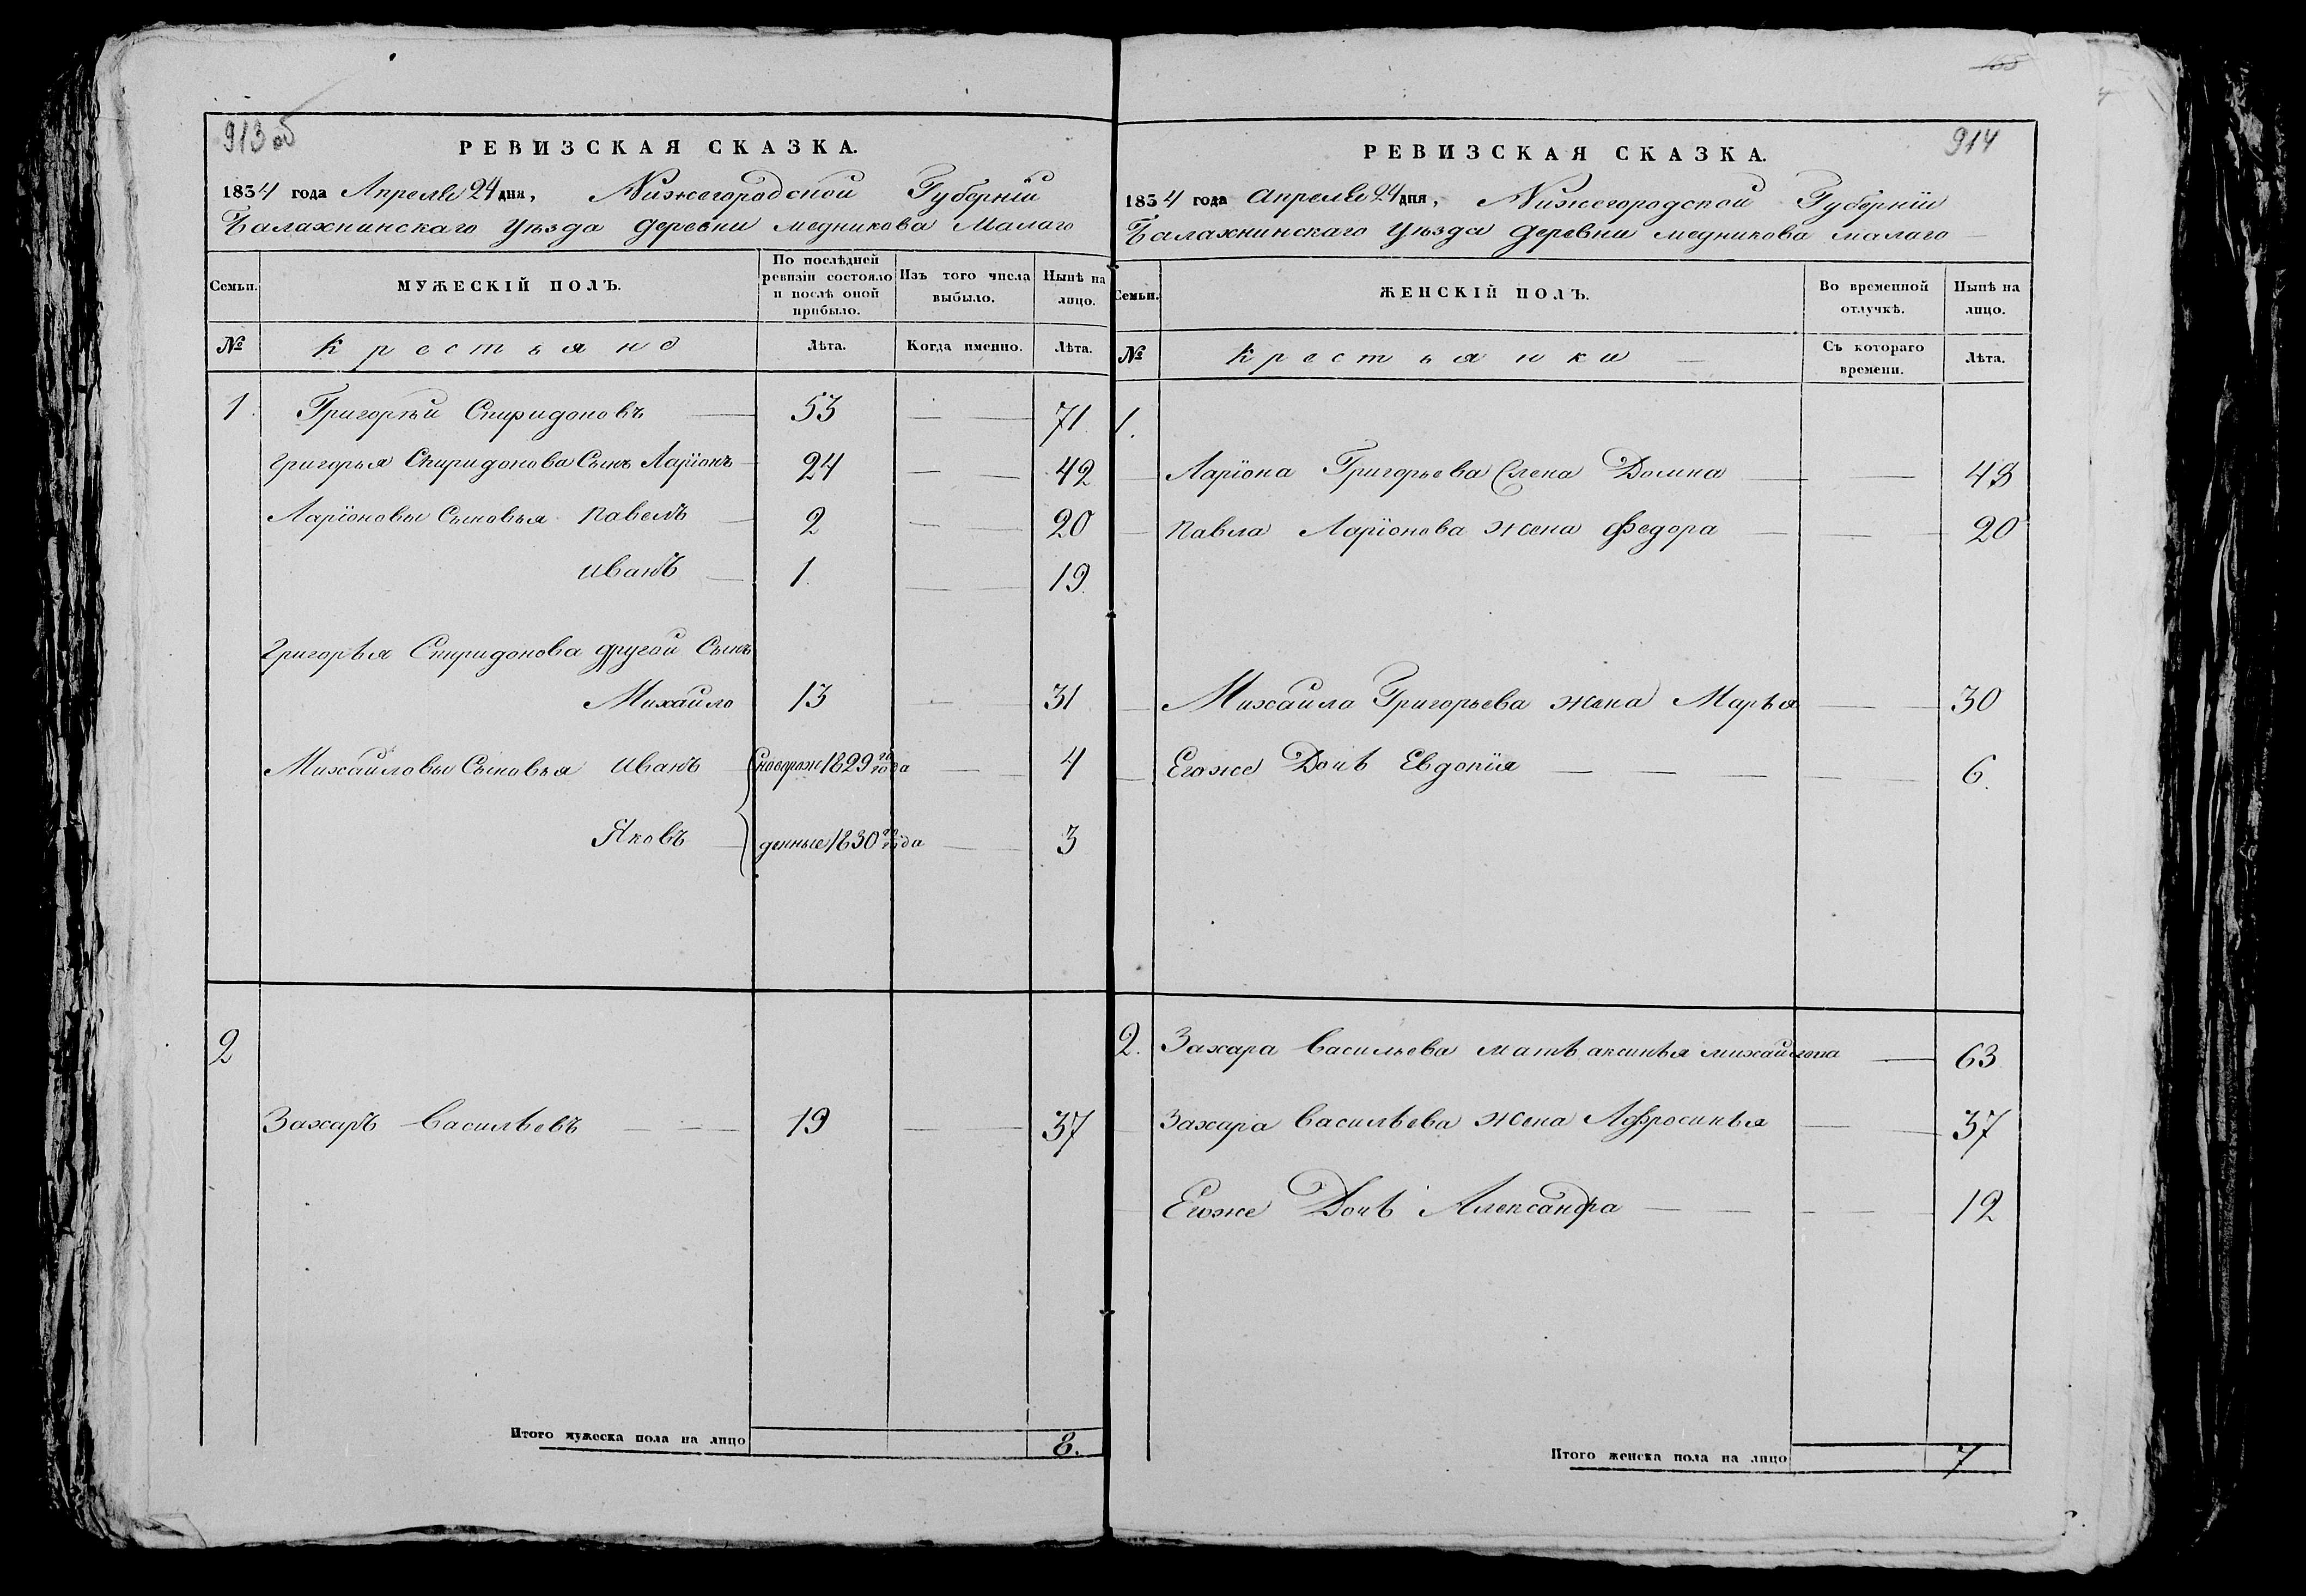 913 об
РЕВИЗСКАЯ СКАЗКА.
1834 года Апреля 24 дня, Нижегородской Губернїи
Балахнинскаго Уѣзда деревни медникова Малаго
Семьи.
МУЖЕСКІЙ ПОЛЪ.
По послѣдней ревизіи состояло и послѣ оной прибыло.
Изъ того числа выбыло.
Нынѣ на лицо.
№
Крестьянѣ
Лѣта.
Когда именно.
Лѣта.
1. Григорѣй Спиридоновъ 53 71.
Григорья Спиридонова Сынъ Ларїонъ 24 42
Ларїоновы Сыновья Павелъ 2 20
Иванъ 1. 19.
Григорѣя Спиридонова другой Сынъ
Михайло 13 31
Михайловы Сыновья Иванъ Сноворож 1829го года 4
Яковъ денные 1830го года 3
2
Захаръ Васильевъ 19 37
Итого мужеска пола на лицо 8.
914
РЕВИЗСКАЯ СКАЗКА.
1834 года Апреля 24 дня, Нижегородской Губернїи
Балахнинскаго Уѣзда деревни медникова малаго
Семьи.
ЖЕНСКІЙ ПОЛЪ.
Во временной отлучкѣ.
Нынѣ на лицо.
№
Крестьянки
Съ котораго времени.
Лѣта.
1.
Ларїона Григорьева Жена Домна 43
Павла Ларїонова жена Федора 20
Михайла Григорьева жена Марѣя 30
Егоже Дочь Евдокїя 6.
2. Захара Васильева мать аксинья михайлова 63
Захара Васильева жена Афросинья 37
Егоже Дочь Александра 12
Итого женска пола на лицо 7